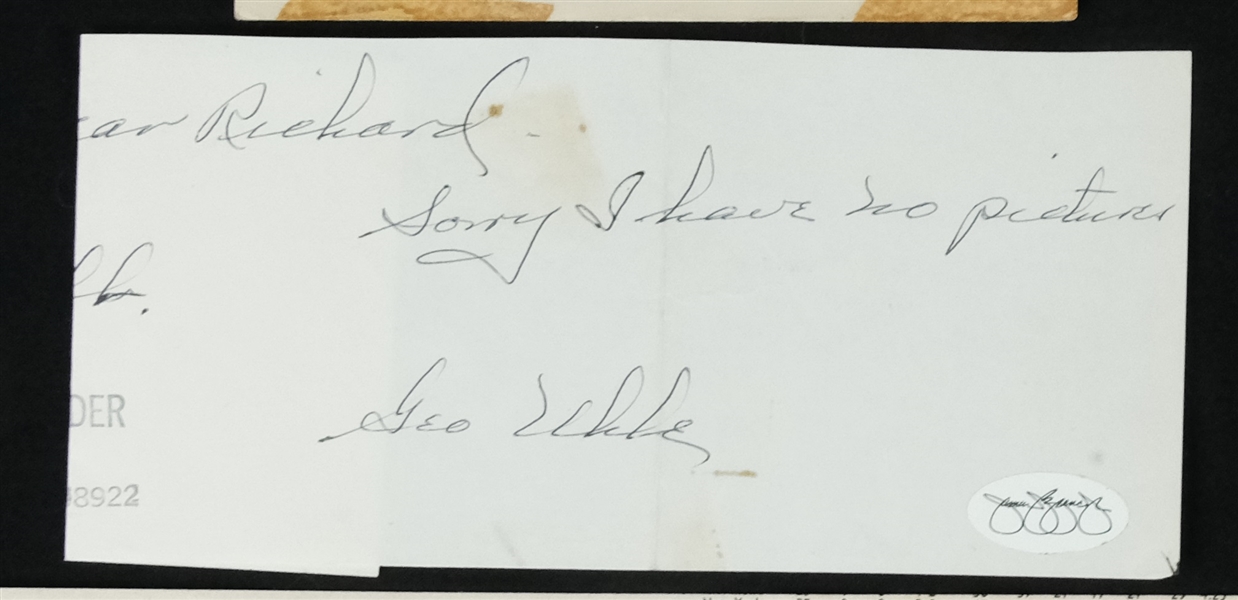 ear Richard -
Sorry I have no pictures
lb.
Geo Uhle
DER
48922